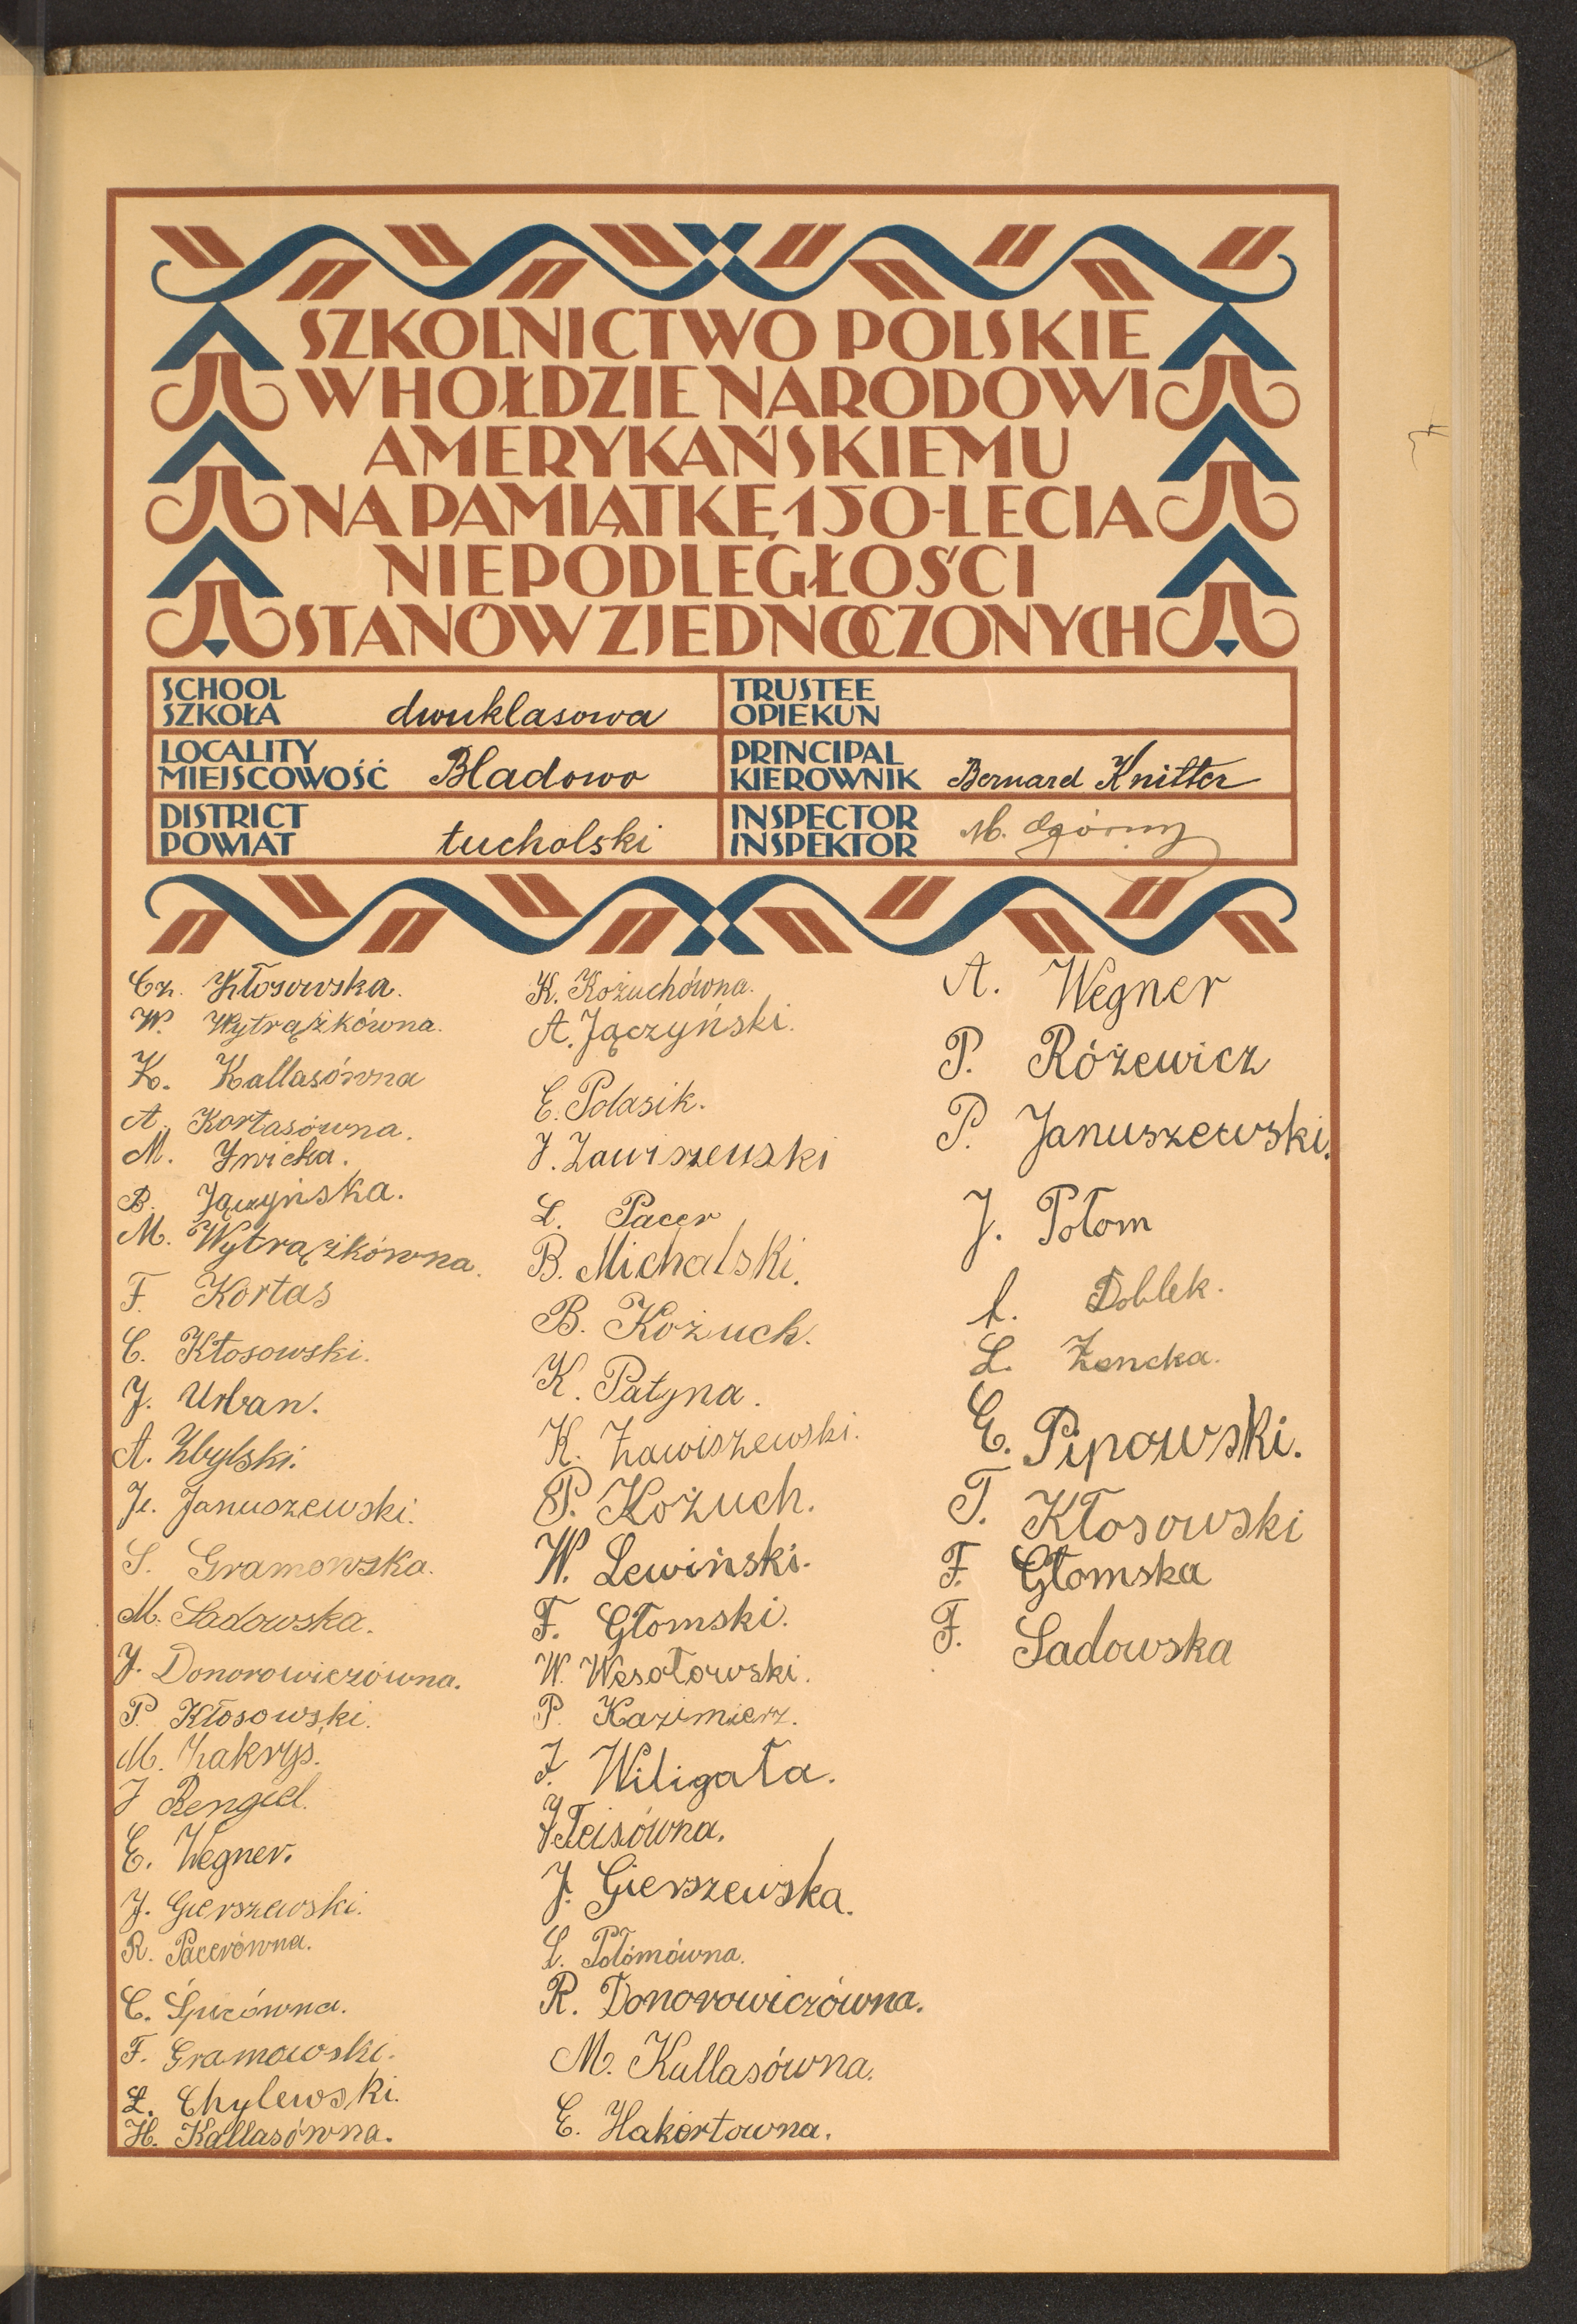 SZKOLNICTWO POLSKIE
W HOŁDZIE NARODOWI
AMERYKAŃSKIEMU
NA PAMIĄTKĘ 150-LECIA
NIEPODLEGŁOŚCI
STANÓW ZJEDNOCZONYCH
SCHOOL
SZKOŁA dwuklasowa
TRUSTEE
OPIEKUN
LOCALITY
MIEJSCOWOŚĆ Bladowo
PRINCIPAL
KIEROWNIK Bernard Knitter
DISTRICT
POWIAT tucholski
INSPECTOR
INSPEKTOR M. Ogórny
Cz. Kłosowska.
W. Wytrążkówna.
K. Kallasówna
A. Kortasówna.
M. Żwicka.
B. Jączyńska.
M. Wytrążkówna.
F. Kortas
C. Kłosowski.
J. Urban.
A. Zbylski.
Je. Januszewski.
S. Gramowska.
M. Sadowska.
J. Donorowiczówna.
P. Kłosowski.
M. Zakryś.
J Rengiel.
E. Wegner.
J. Gierszewski.
R. Pacerówna.
C. Śpicówna.
F. Gramowski.
Ł. Chylewski.
H. Kallasówna.
K. Kożuchówna.
A. Jączyński.
E. Polasik.
J. Zawiszewski
L. Pacer
B. Michalski.
B. Kożuch.
K. Patyna.
K. Zawiszewski.
P. Kożuch.
W. Lewiński.
F. Głomski.
W. Wesołowski.
P. Kazimierz.
F. Wiligała.
J Teisówna.
J. Gierszewska.
L. Połomówna.
R. Donorowiczówna.
M. Kallasówna.
E. Hakertowna.
A. Wegner
P. Różewicz
P. Januszewski.
J. Połom
Doblek.
L. Żencka.
E. Pipowski.
T. Kłosowski
F. Głomska
F. Sadowska